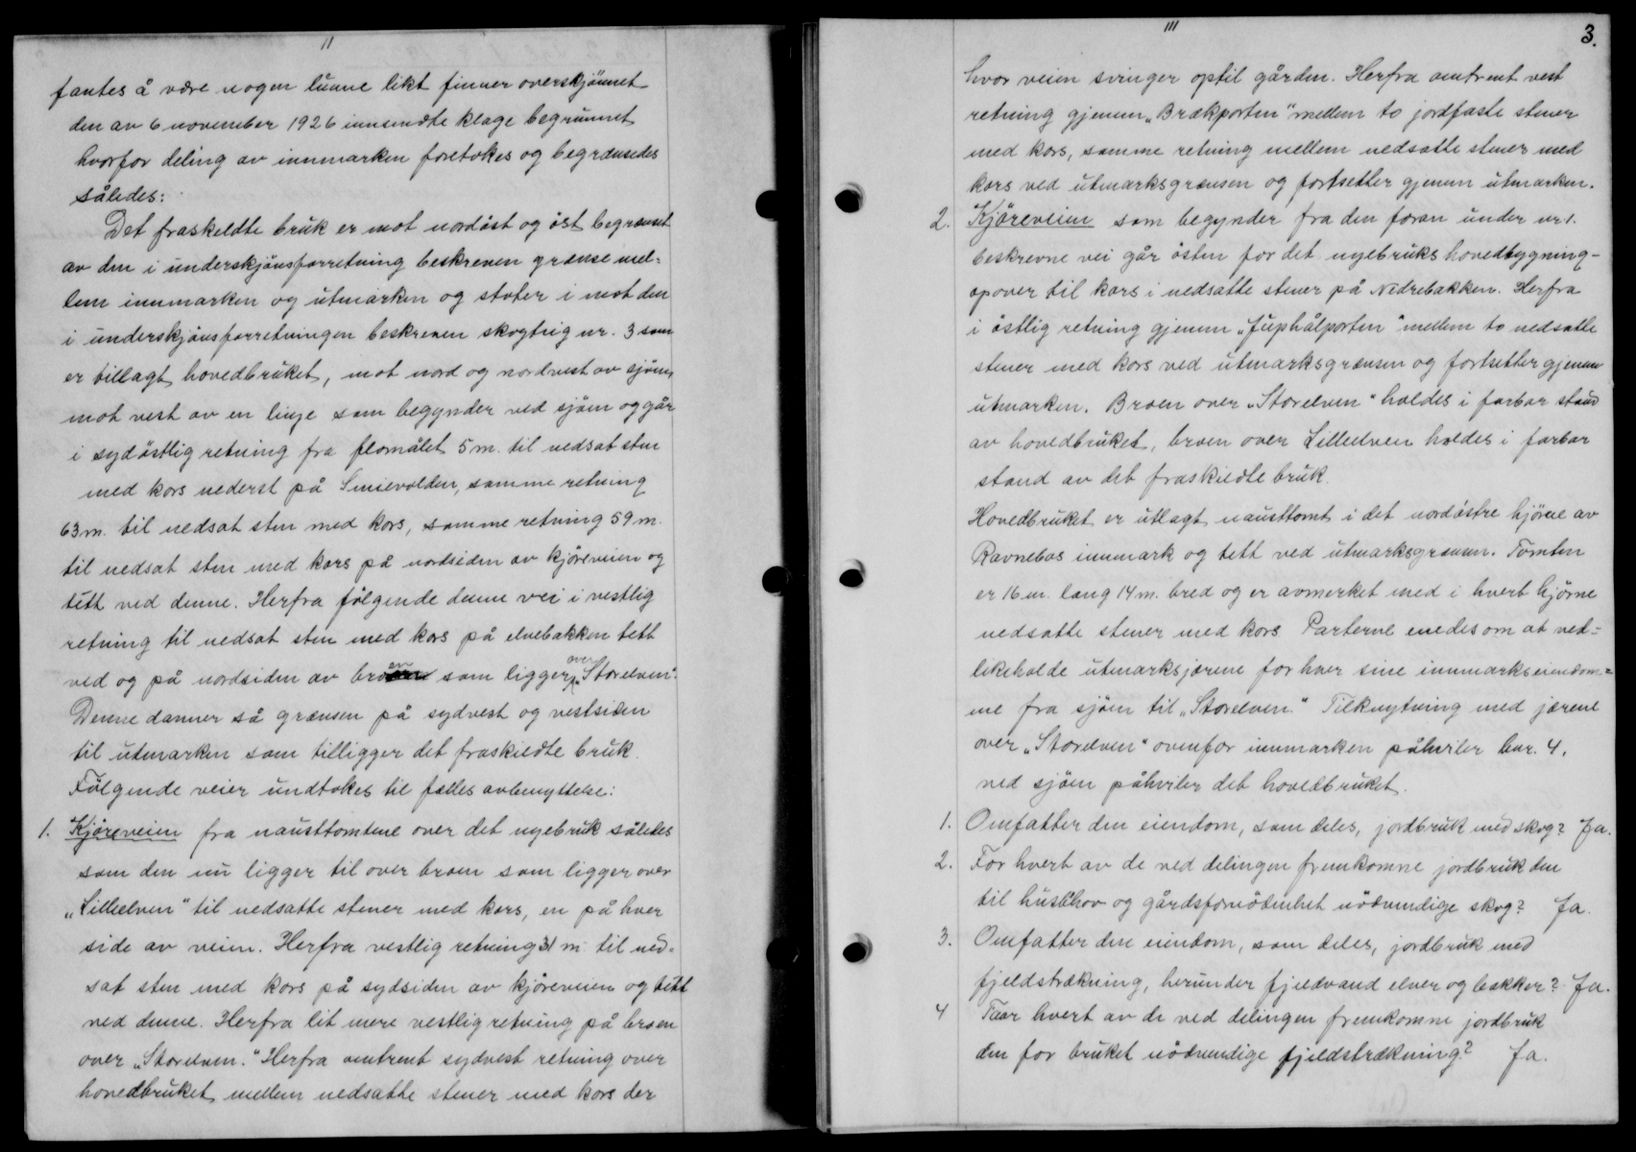 11
fantes å være nogen lunne likt finner overskjønnet
den av 6 november 1926 innsendte klage begrunnet
hvorfor deling av innmarken foretokes og begrænsedes
således:
Det fraskeldte bruk er mot nordöst og öst begrænset
av den i underskjönsforretning beskreven grænse mel-
lem innmarken og utmarken og støter i mot den
i underskjönsforretningen beskreven skogteig nr. 3 som
er tillagt hovedbruket, mot nord og nordvest av sjöen,
mot vest av en linje som begynder ved sjöen og går
i sydöstlig retning fra flomålet 5 m. til nedsat sten
med kors nederst på Smievolden, samme retning
63 m. til nedsat sten med kors, samme retning 59 m.
til nedsat sten med kors på nordsiden av kjöreveien og
tett ved denne. Herfra fölgende denne vei i vestlig
retning til nedsat sten med kors på elvebakken tett
ved og på nordsiden av broen som ligger over "Storelven".
Denne danner så grænsen på sydvest og vestsiden
til utmarken som tilligger det fraskildte bruk.
Fölgende veier undtokes til fælles avbenyttelse:
1. Kjöreveien fra nausttomtene over det nyebruk således
som den nu ligger til over broen som ligger over
"Lilleelven" til nedsatte stener med kors, en på hver
side av veien. Herfra vestlig retning 31 m. til ned-
sat sten med kors på sydsiden av kjöreveien og tett
ved denne. Herfra lit mere vestlig retning på broen
over "Storelven." Herfra omtrent sydvest retning over
hovedbruket mellem nedsatte stener med kors der
111
3.
hvor veien svinger optil gården. Herfra omtrent vest
retning gjennem "Brækporten" mellem to jordfaste stener
med kors, samme retning mellem nedsatte stener med
kors ved utmarksgrænsen og fortsetter gjennem utmarken.
2. Kjöreveien som begynder fra den foran under nr. 1.
beskrevne vei går östen for det nyebruks hovedbygning-
opover til kors i nedsatte stener på Nedrebakken. Herfra
i östlig retning gjennem "Juphålporten" mellem to nedsatte
stener med kors ved utmarksgrænsen og fortsetter gjennem
utmarken. Broen over "Storelven" holdes i farbar stand
av hovedbruket, broen over Lilleelven holdes i farbar
stand av det fraskildte bruk.
Hovedbruket er utlagt nausttomt i det nordöstre hjörne av
Ravnebas innmark og tett ved utmarksgrænsen. Tomten
er 16 m. lang 14 m. bred og er avmerket med i hvert hjörne
nedsatte stener med kors. Parterne enedes om at ved-
likeholde utmarksjærene for hver sine innmarkseiendom-
me fra sjöen til "Storelven." Tilknytning med jærene
over "Storelven" ovenfor innmarken påhviler bnr. 4.
ved sjöen påhviler det hovedbruket.
1. Omfatter den eiendom, som deles, jordbruk med skog? Ja.
2. Før hvert av de ved delingen fremkomne jordbruk den
til husbehov og gårdsfornödenhet nödvendige skog? Ja.
3. Omfatter den eiendom, som deles, jordbruk med
fjeldstrækning, herunder fjeldvand elver og bækker? Ja.
4 Faar hvert av de ved delingen fremkomne jordbruk
den for bruket nödvendige fjeldstrækning? Ja.